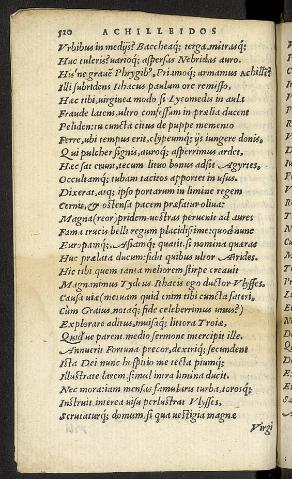 520 ACHILLEIDOS
Vrbibus in medijs? Baccheaq; terga, mitrasq;
Huc tuleris? varioq; aspersas Nebridas auro.
His' ne grauē Phrygib', Priamoq; armamus Achillē?
Illi subridens Ithacus paulum ore remisso,
Hæc tibi, virginea modo si Lycomedis in aula
Fraude latens, ultro confessum in prælia ducent
Peliden: tu cuncta citus de puppe memento
Ferre, ubi tempus erit, clypeumq; ijs iungere donis,
Qui pulcher signis, auroq; asperrimus ardet.
Hæc sat erunt, tecum lituo bonus adsit Agyrtes,
Occultamq; tubam tacitos apportet in usus.
Dixerat, atq; ipso portarum in limine regem
Cernit, & ostensa pacem præfatur oliua:
Magna (reor) pridem uestras peruenit ad aures
Fama trucis belli regum placidissime: quod nunc
Europamq;, Asiamq; quatit. si nomina quæras
Huc prælata ducum: fidit quibus ultor Atrides.
Hic tibi quem tanta meliorem stirpe creauit
Magnanimus Tydeus: Ithacis ego ductor Vlysses.
Causa uiæ (metuam quid enim tibi cuncta fateri,
Cum Graius, notaq; fide celeberrimus unus?)
Explorare aditus, inuisaq; littora Troiæ,
Quid' ue parent. medio sermone intercipit ille.
Annuerit Fortuna precor, dextriq; secundent
Ista Dei nunc hospitio me tecta piumq;
Illustrate larem, simul intra limina ducit.
Nec mora: iam mensas famularis turba, torosq;
Instruit, interea uisu perlustrat Vlysses,
Scrutaturq; domum, si qua uestigia magnæ
Virgi